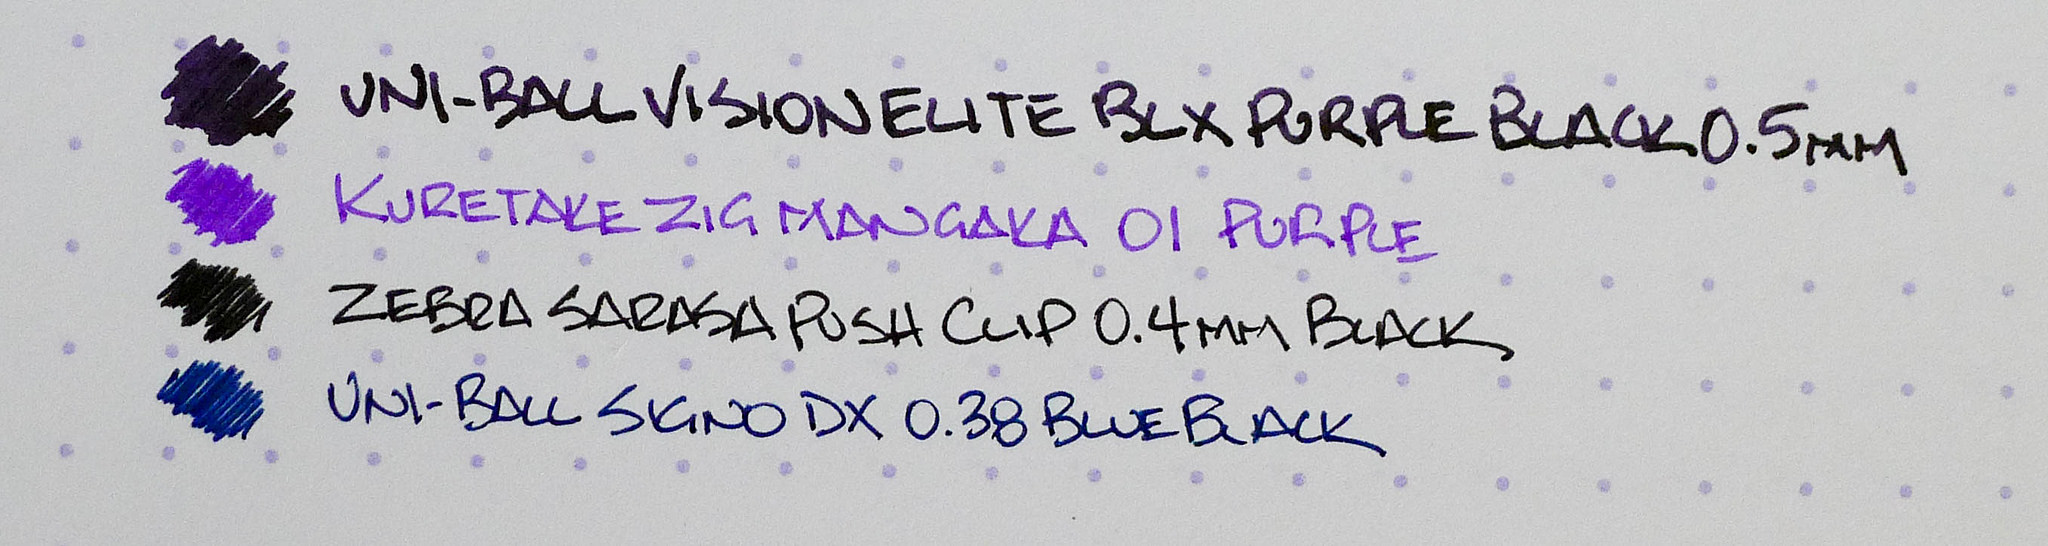 UNI-BALL VISION ELITE BLX PURPLE BLACK 0.5MM
KURETAKE ZIG MANGAKA 01 PURPLE
ZEBRA SARASA PUSH CLIP 0.4MM BLACK
UNI-BALL SIGNO DX 0.38 BLUE BLACK